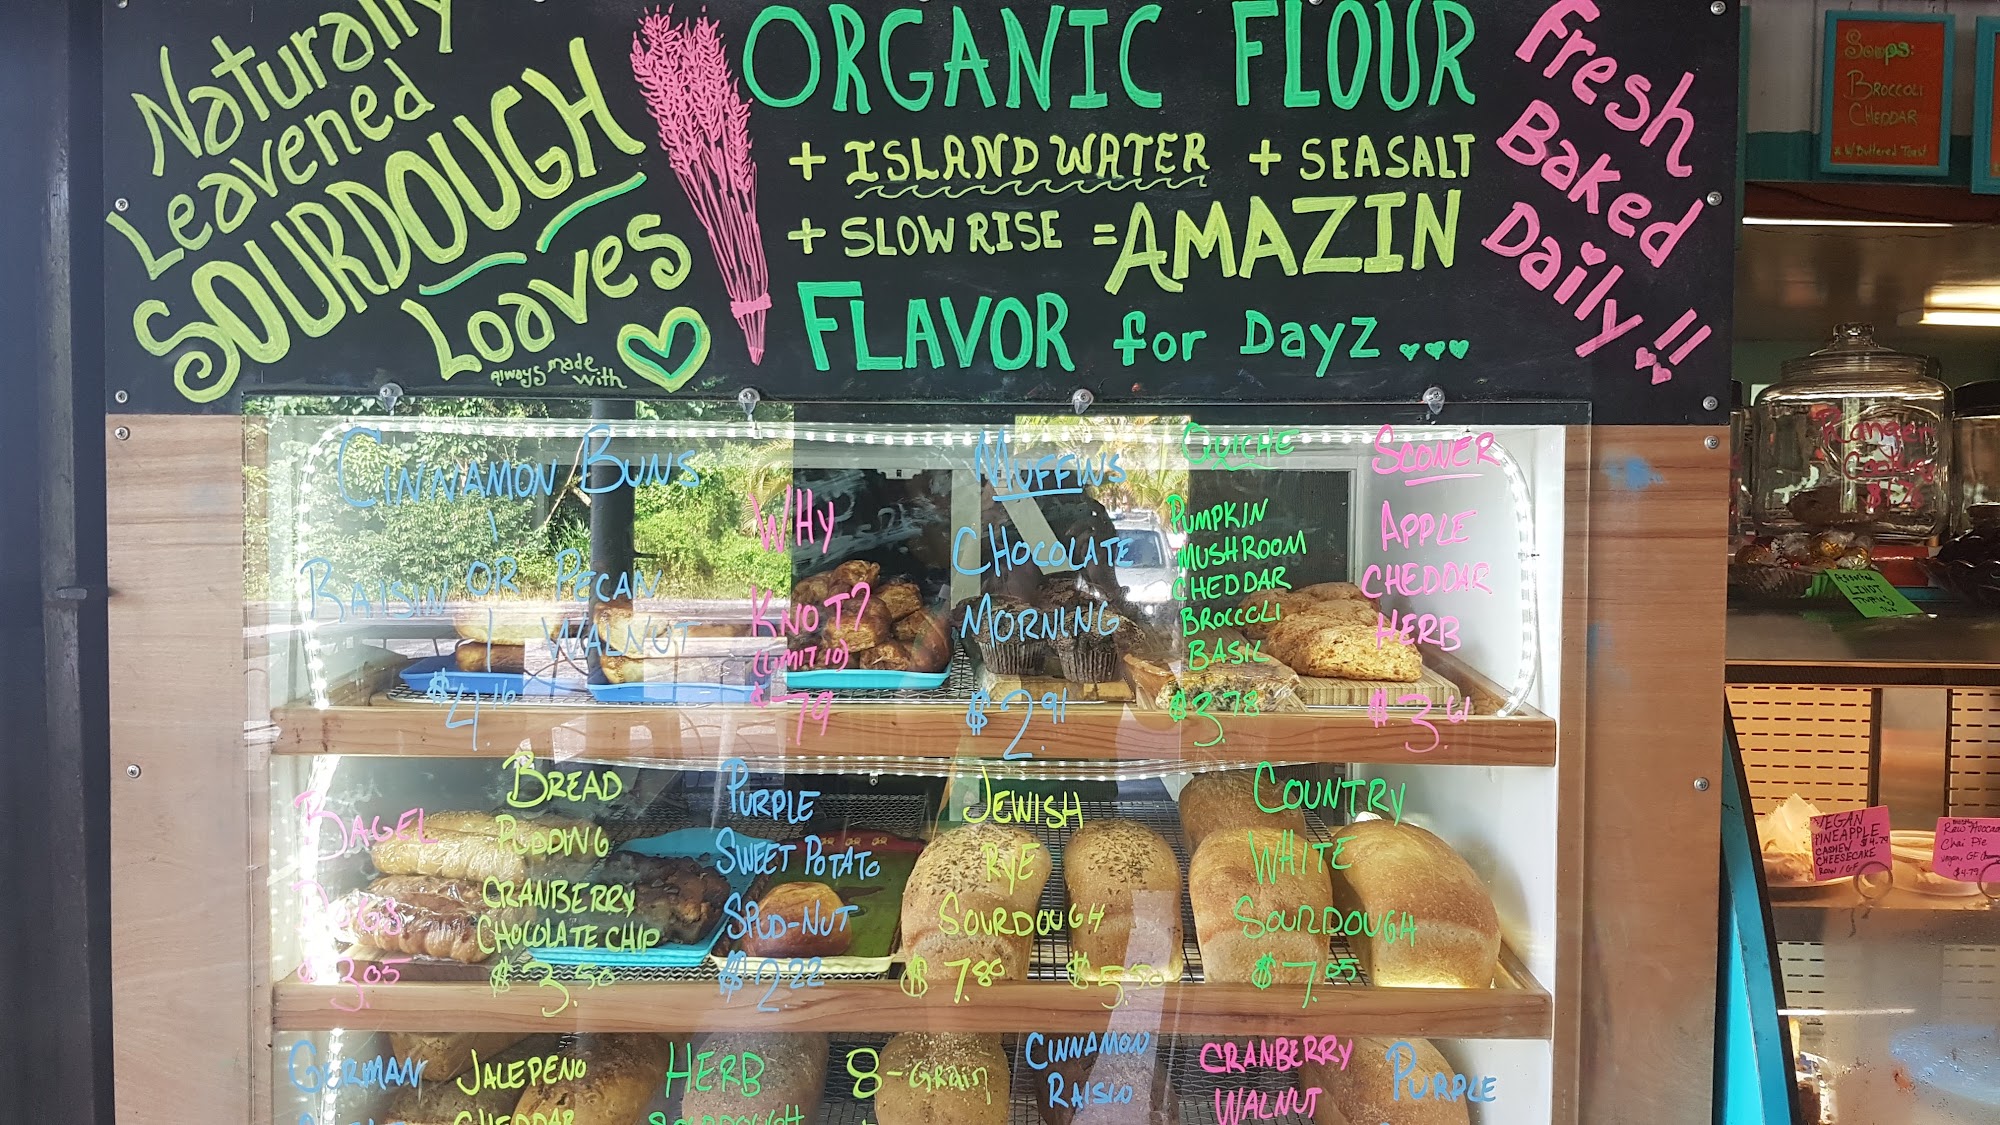 Naturally
Leavened
SOURDOUGH
Loaves
Always made with
ORGANIC FLOUR
+ ISLAND WATER + SEA SALT
+ SLOW RISE = AMAZIN
FLAVOR for Dayz ...
Fresh
Baked
Daily!!
Soups:
BROCCOLI
CHEDDAR
& W/ Buttered Toast
CINNAMON BUNS
RAISIN OR PECAN
WALNUT
$4.16
WHY
KNOT?
(LIMIT 10)
$.79
MUFFINS
CHOCOLATE
MORNING
$2.91
QUICHE
PUMPKIN
MUSHROOM
CHEDDAR
BROCCOLI
BASIL
$3.78
SCONER
APPLE
CHEDDAR
HERB
$3.61
BAGEL
DOGS
$3.05
BREAD
PUDDING
CRANBERRY
CHOCOLATE CHIP
$3.50
PURPLE
SWEET POTATO
SPUD-NUT
$2.22
JEWISH
RYE
SOURDOUGH
$7.80 $5.50
COUNTRY
WHITE
SOURDOUGH
$7.05
GERMAN
JALEPENO
CHEDDAR
HERB
SOURDOUGH
8-GRAIN
CINNAMON
RAISIN
CRANBERRY
WALNUT
PURPLE
Ranger
Cookies
Assorted
LINDT
VEGAN
PINEAPPLE
CASHEW $4.79
CHEESECAKE
RAW / GF
Chai Pie
$4.79